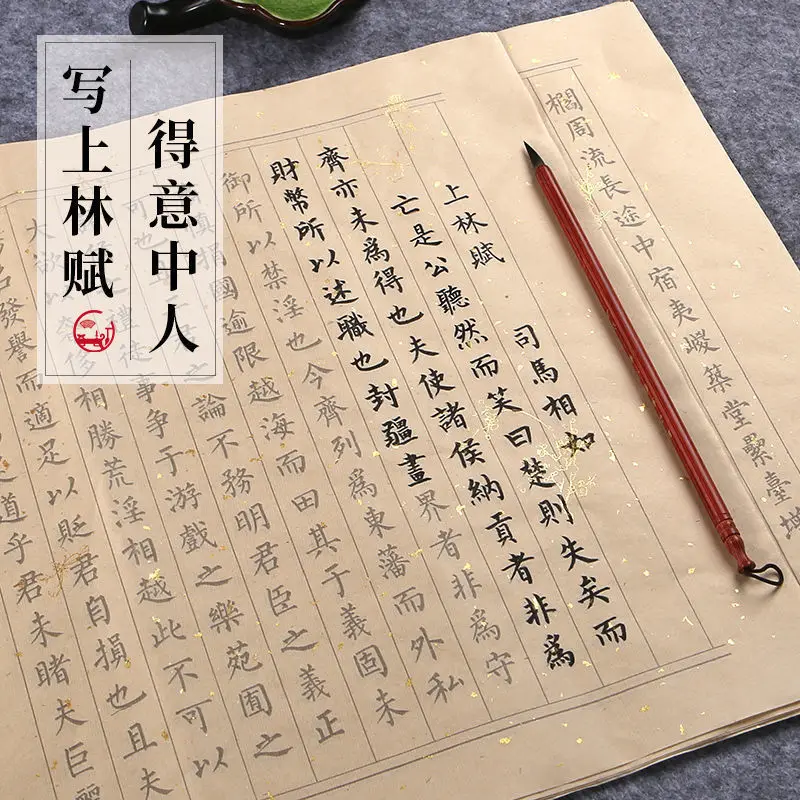 得意中人
写上林赋
櫩周流長途中宿夷嵕築堂累臺
上林赋 司馬相如
亡是公聽然而笑曰楚則失矣而
齊亦未為得也夫使諸侯納貢者非為
財幣所以述職也封疆畫界者非為守
御所以禁淫也今齊列為東藩而外私
慎捐國逾限越海而田其于義固未
可也 君之論不務明君臣之義正
禮徒事爭于游戲之樂苑囿之
大欲以奢侈相勝荒淫相越此不可以
名發譽而適足以貶君自損也且夫
道乎君未睹夫巨麗